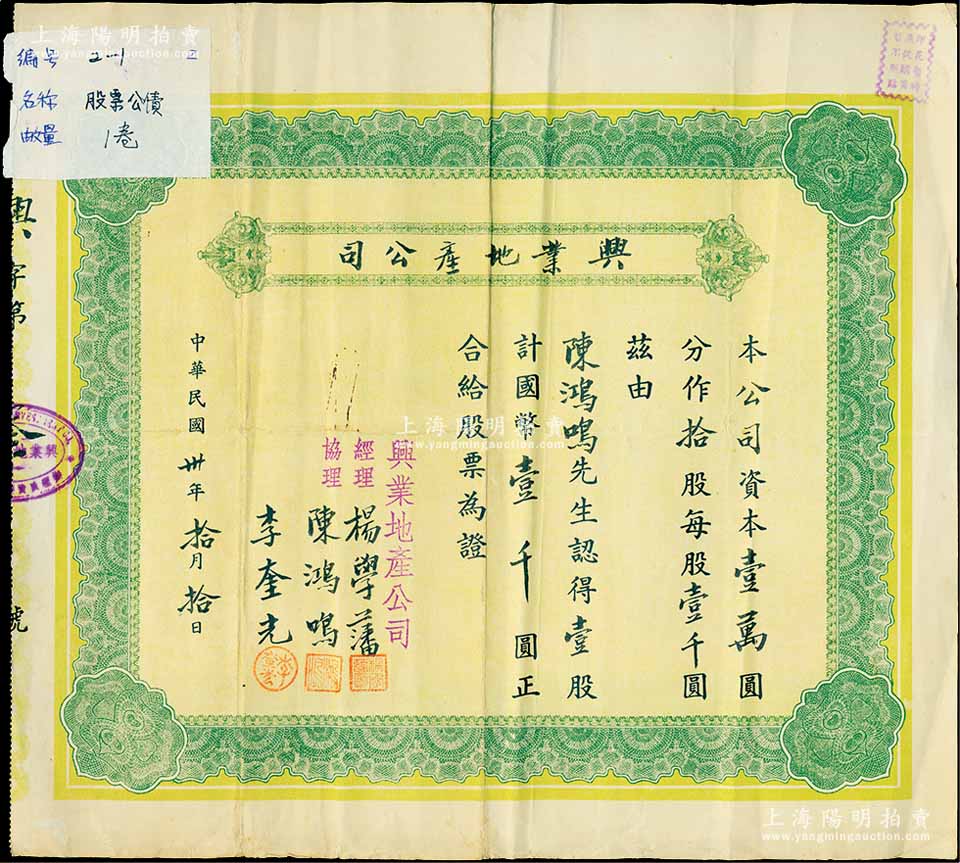 上海陽明拍賣
www.yangmingauction.com
編号 2-1
名称 股票公債
数量 1卷
興業地產公司
本公司資本壹萬圓
分作拾股每股壹千圓
茲由
陳鴻鳴先生認得壹股
計國幣壹千圓正
合給股票為證
興業地產公司
經理 楊學藩
協理 陳鴻鳴
李奎光
中華民國卅年拾月拾日
興字第
號
上海陽明拍賣
www.yangmingauction.com
上海陽明拍賣
www.yangmingauction.com